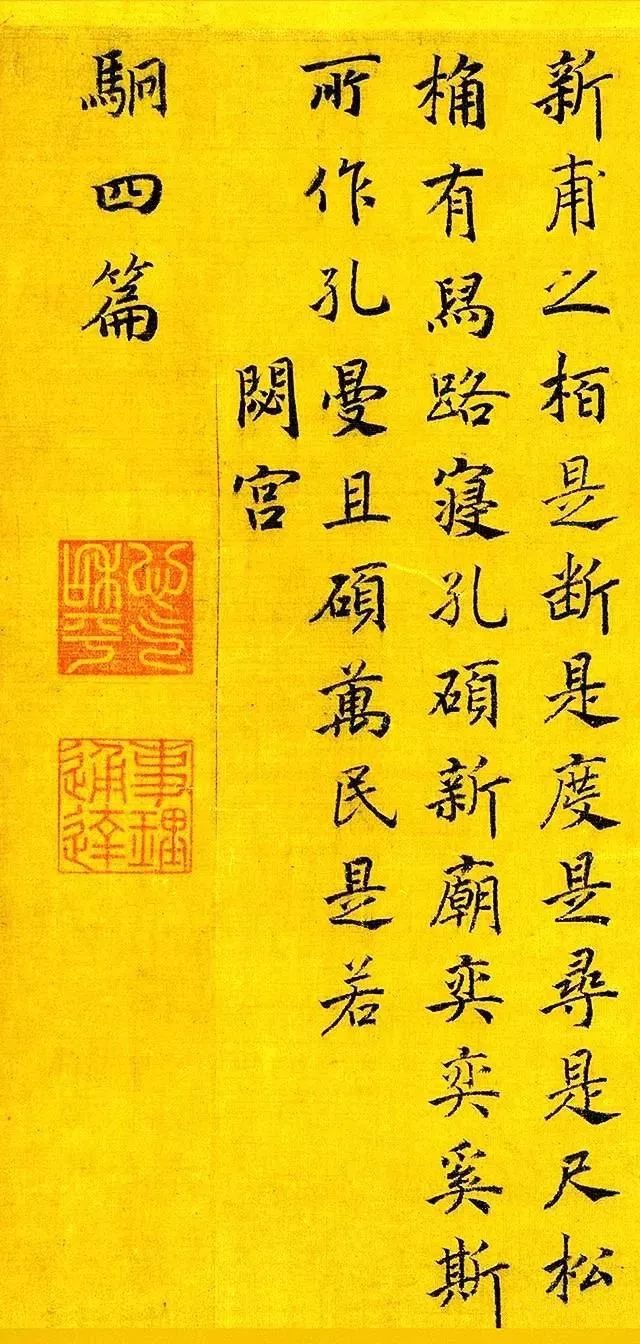 新甫之栢是断是度是尋是尺松
桷有舄路寢孔碩新廟奕奕奚斯
所作孔曼且碩萬民是若
閟宫
駉四篇
心气和平
事理通達